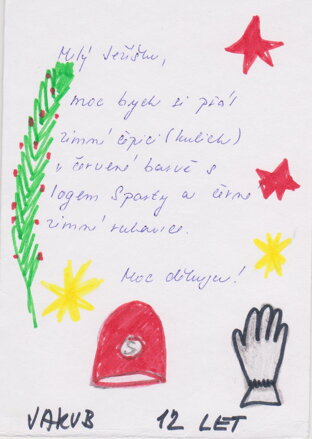 Milý Ježíšku,
moc bych si přál
zimní čepici (kulich)
v červené barvě s
logem Sparty a černé
zimní rukavice.
Moc děkuju!
S
JAKUB 12 LET